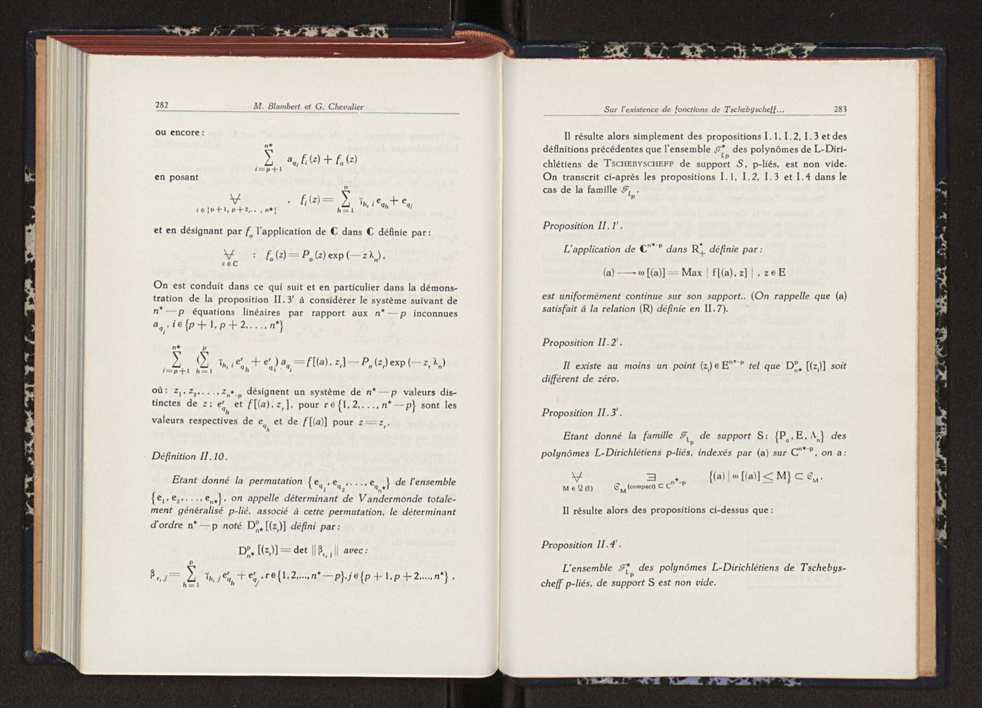 282 M. Blambert et G. Chevalier
ou encore :
n*
∑ a_{q_i} f_i (z) + f_o (z)
i=p+1
en posant
∀ , f_i (z) = ∑_{h=1}^{p} γ_{h, i} e_{q_h} + e_{q_i}
i ∈ {p+1, p+2, . . , n*}
et en désignant par f_o l'application de C dans C définie par :
∀ : f_o (z) = P_o (z) exp (— z λ_n) .
z ∈ C
On est conduit dans ce qui suit et en particulier dans la démons-
tration de la proposition II. 3' à considérer le système suivant de
n* — p équations linéaires par rapport aux n* — p inconnues
a_{q_i} , i ∈ {p + 1, p + 2, . . . , n*}
∑_{i=p+1}^{n*} (∑_{h=1}^{p} γ_{h, i} e^r_{q_h} + e^r_{q_i}) a_{q_i} = f [(a), z_r] — P_o (z_r) exp (— z_r λ_n)
où : z_1 , z_2 , . . . , z_{n*-p} désignent un système de n* — p valeurs dis-
tinctes de z ; e^r_{q_h} et f [(a), z_r] , pour r ∈ {1, 2, . . . , n* — p} sont les
valeurs respectives de e_{q_h} et de f [(a)] pour z = z_r .
Définition II. 10.
Etant donné la permutation {e_{q_1} , e_{q_2} , . . . , e_{q_{n*}}} de l'ensemble
{e_1 , e_2 , . . . , e_{n*}} , on appelle déterminant de Vandermonde totale-
ment généralisé p-lié, associé à cette permutation, le déterminant
d'ordre n* — p noté D^p_{n*} [(z_r)] défini par :
D^p_{n*} [(z_r)] = det ‖ β_{r, j} ‖ avec :
β_{r, j} = ∑_{h=1}^{p} γ_{h, j} e^r_{q_h} + e^r_{q_j} , r ∈ {1, 2, ..., n* — p}, j ∈ {p + 1, p + 2, ..., n*} .
Sur l'existence de fonctions de Tschebyscheff... 283
Il résulte alors simplement des propositions I. 1, I. 2, I. 3 et des
définitions précédentes que l'ensemble ℱ*_{L_p} des polynômes de L-Diri-
chlétiens de TSCHEBYSCHEFF de support S, p-liés, est non vide.
On transcrit ci-après les propositions I. 1, I. 2, I. 3 et I. 4 dans le
cas de la famille ℱ_{L_p} .
Proposition II. 1'.
L'application de C^{n*-p} dans R^*_+ définie par :
(a) ⟶ ω [(a)] = Max | f[(a), z] | , z ∈ E
est uniformément continue sur son support.. (On rappelle que (a)
satisfait à la relation (R) définie en II. 7).
Proposition II. 2'.
Il existe au moins un point (z_r) ∈ E^{n*-p} tel que D^p_{n*} [(z_r)] soit
différent de zéro.
Proposition II. 3'.
Etant donné la famille ℱ_{L_p} de support S : {P_o , E, Λ_n} des
polynômes L-Dirichlétiens p-liés, indexés par (a) sur C^{n*-p}, on a :
∀ ∃ {(a) | ω [(a)] ≤ M} ⊂ 𝒞_M .
M ∈ Ω (I) 𝒞_M (compact) ⊂ C^{n*-p}
Il résulte alors des propositions ci-dessus que :
Proposition II. 4'.
L'ensemble ℱ*_{L_p} des polynômes L-Dirichlétiens de Tschebys-
cheff p-liés, de support S est non vide.